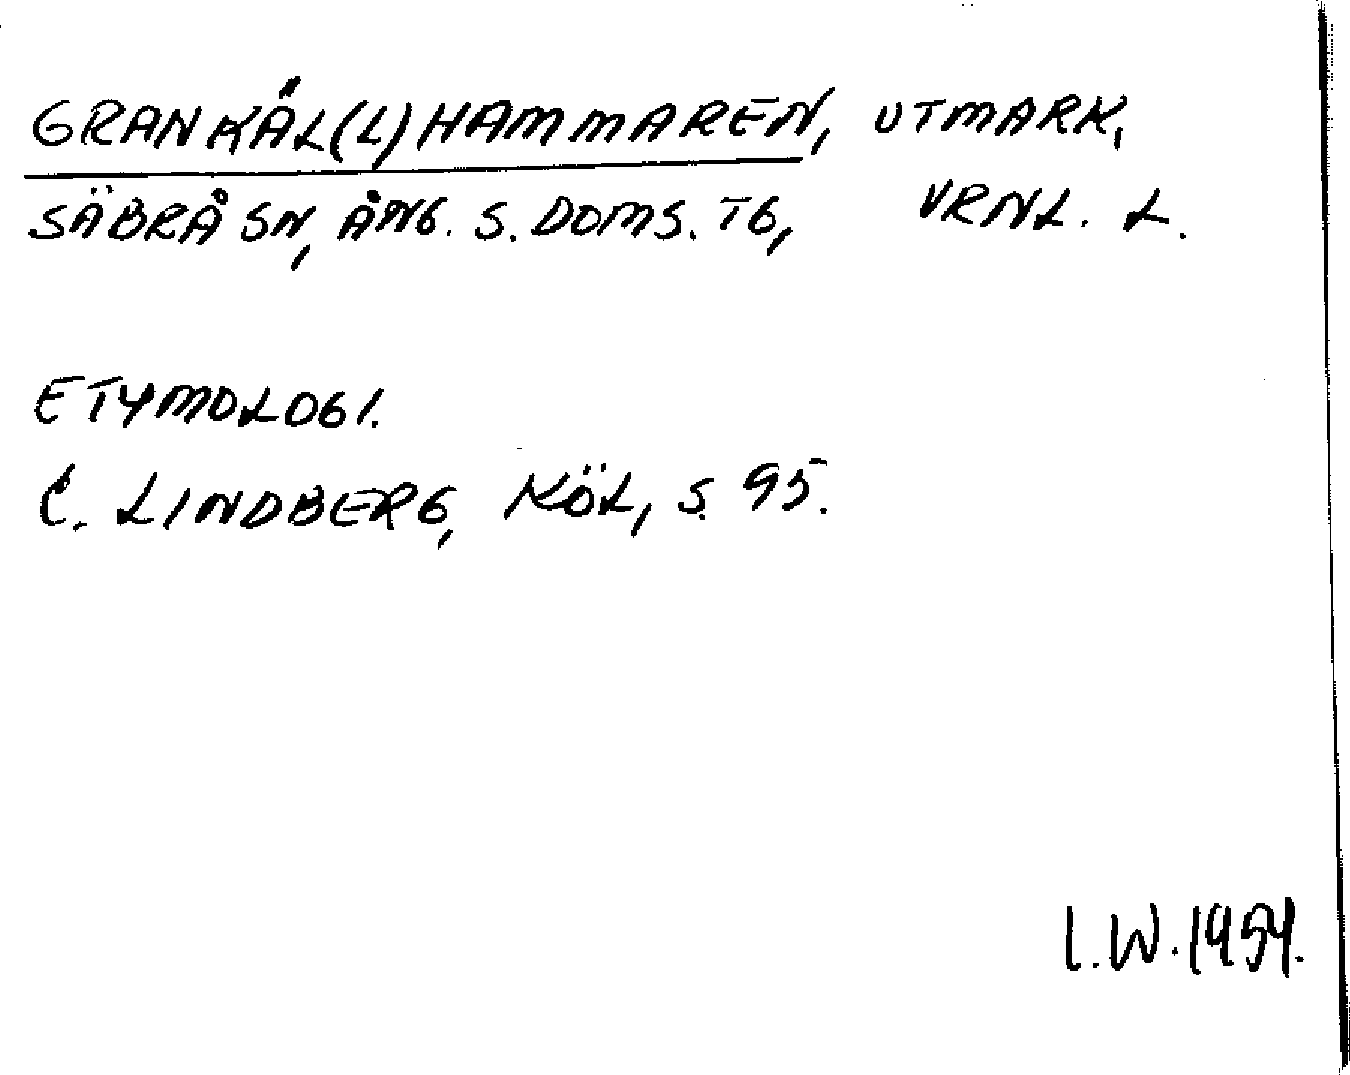 GRANKÄL(L)HAMMAREN, UTMARK,
SÄBRÅ SN, ÅNG. S. DOMS. TG, VRNL. L.
ETYMOLOGI.
C. LINDBERG, KÖL, S. 95.
I.W. 1954.